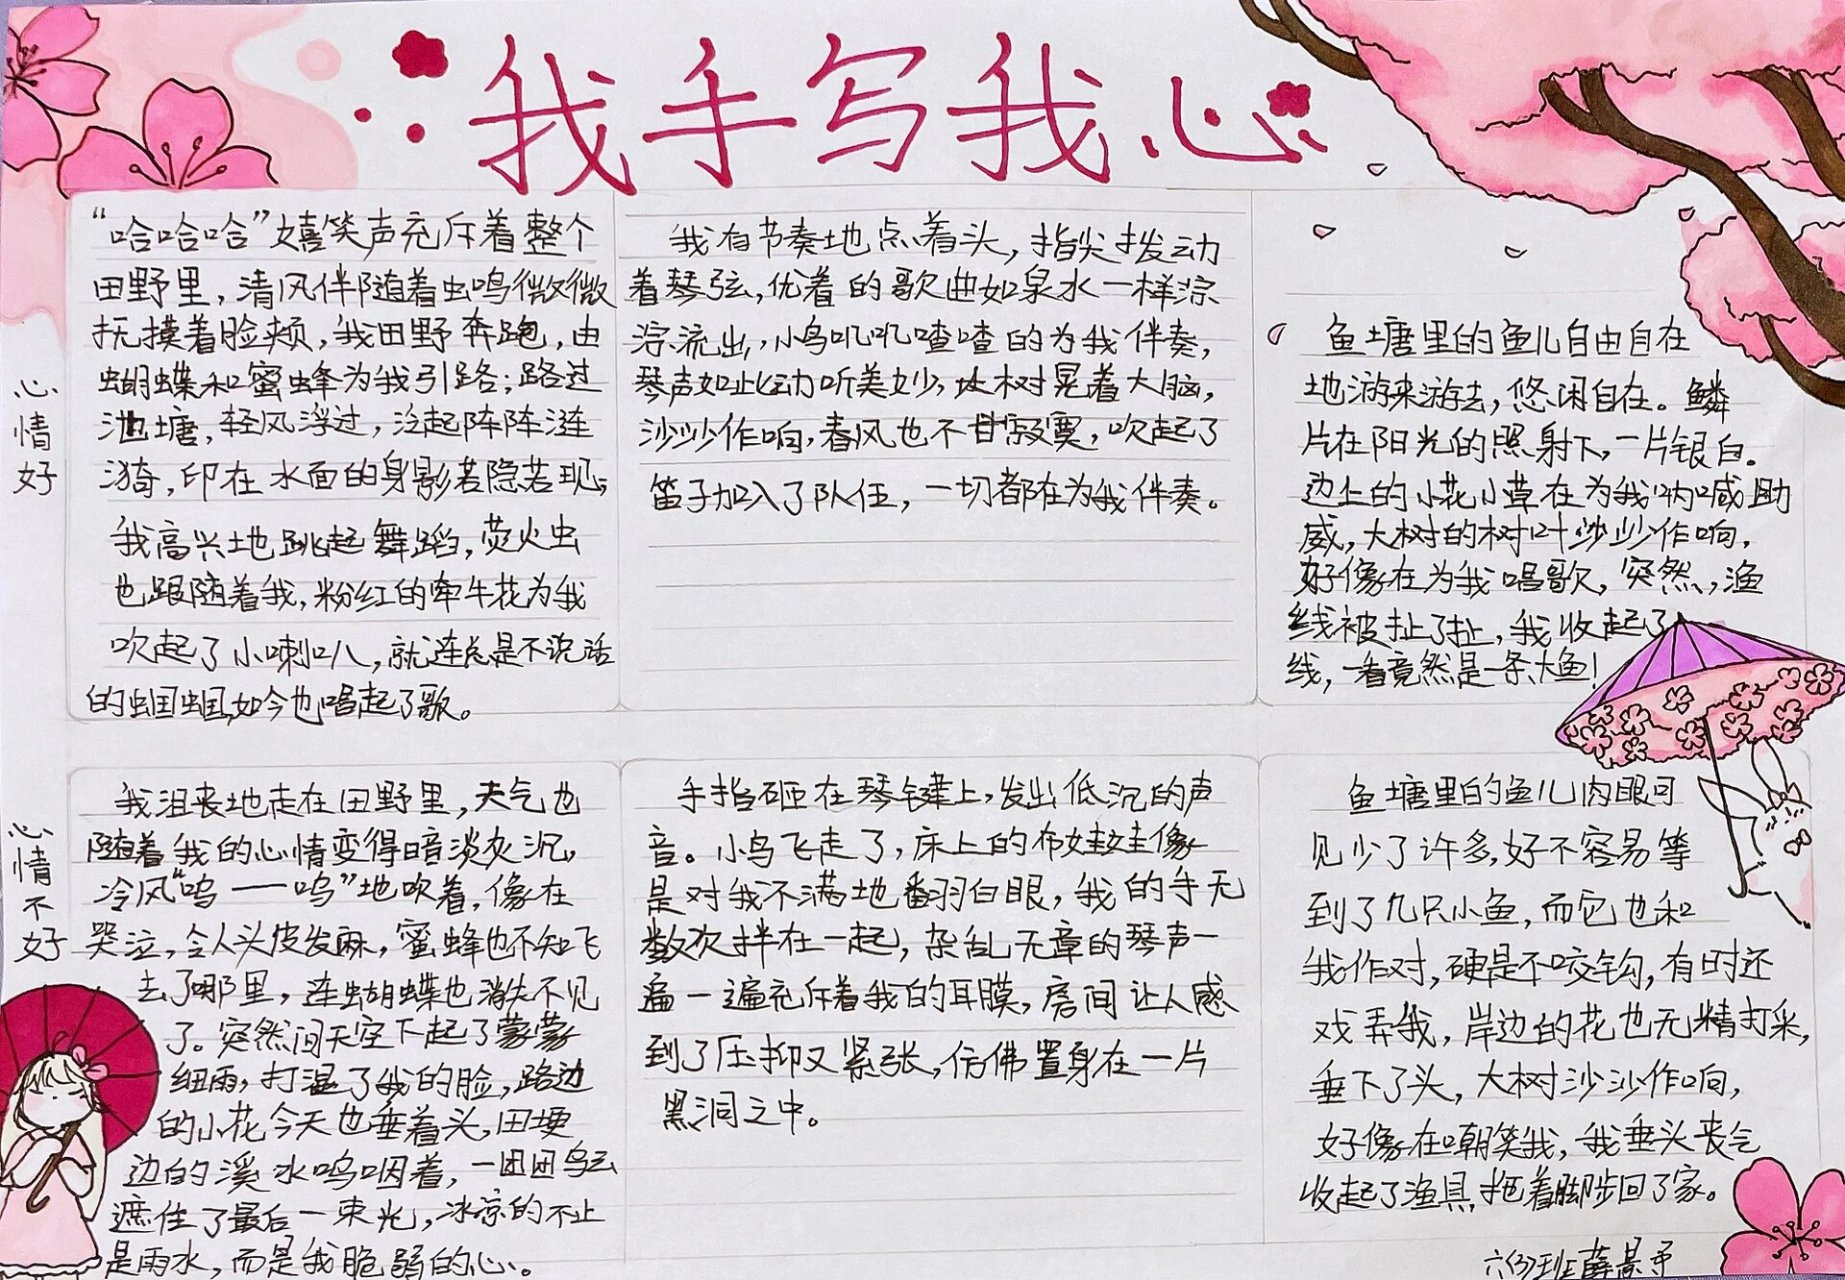 我手写我心
心情好
“哈哈哈”嬉笑声充斥着整个
田野里，清风伴随着虫鸣微微
抚摸着脸颊，我田野奔跑，由
蝴蝶和蜜蜂为我引路；路过
池塘，轻风浮过，泛起阵阵涟
漪，印在水面的身影若隐若现，
我高兴地跳起舞蹈，荧火虫
也跟随着我，粉红的牵牛花为我
吹起了小喇叭，就连总是不说话
的蝈蝈，如今也唱起了歌。
我有节奏地点着头，指尖拨动
着琴弦，优着的歌曲如泉水一样淙
淙流出，小鸟叽叽喳喳的为我伴奏，
琴声如此动听美妙，大树晃着大脑，
沙沙作响，春风也不甘寂寞，吹起了
笛子加入了队伍，一切都在为我伴奏。
鱼塘里的鱼儿自由自在
地游来游去，悠闲自在。鳞
片在阳光的照射下，一片银白。
边上的小花小草在为我呐喊助
威，大树的树叶沙沙作响，
好像在为我唱歌，突然，渔
线被扯了扯，我收起了
线，一看竟然是一条大鱼！
心情不好
我沮丧地走在田野里，天气也
随着我的心情变得暗淡灰沉，
冷风“呜——呜”地吹着，像在
哭泣，令人头皮发麻，蜜蜂也不知飞
去了哪里，连蝴蝶也消失不见
了。突然间天空下起了蒙蒙
细雨，打湿了我的脸，路边
的小花今天也垂着头，田埂
边的溪水呜咽着，一团团乌云
遮住了最后一束光，冰凉的不止
是雨水，而是我脆弱的心。
手指砸在琴键上，发出低沉的声
音。小鸟飞走了，床上的布娃娃像
是对我不满地翻羽白眼，我的手无
数次拌在一起，杂乱无章的琴声一
遍一遍充斥着我的耳膜，房间让人感
到了压抑又紧张，仿佛置身在一片
黑洞之中。
鱼塘里的鱼儿肉眼可
见少了许多，好不容易等
到了几只小鱼，而它也和
我作对，硬是不咬钩，有时还
戏弄我，岸边的花也无精打采，
垂下了头，大树沙沙作响，
好像在嘲笑我，我垂头丧气
收起了渔具，拖着脚步回了家。
六(3)班薛景予